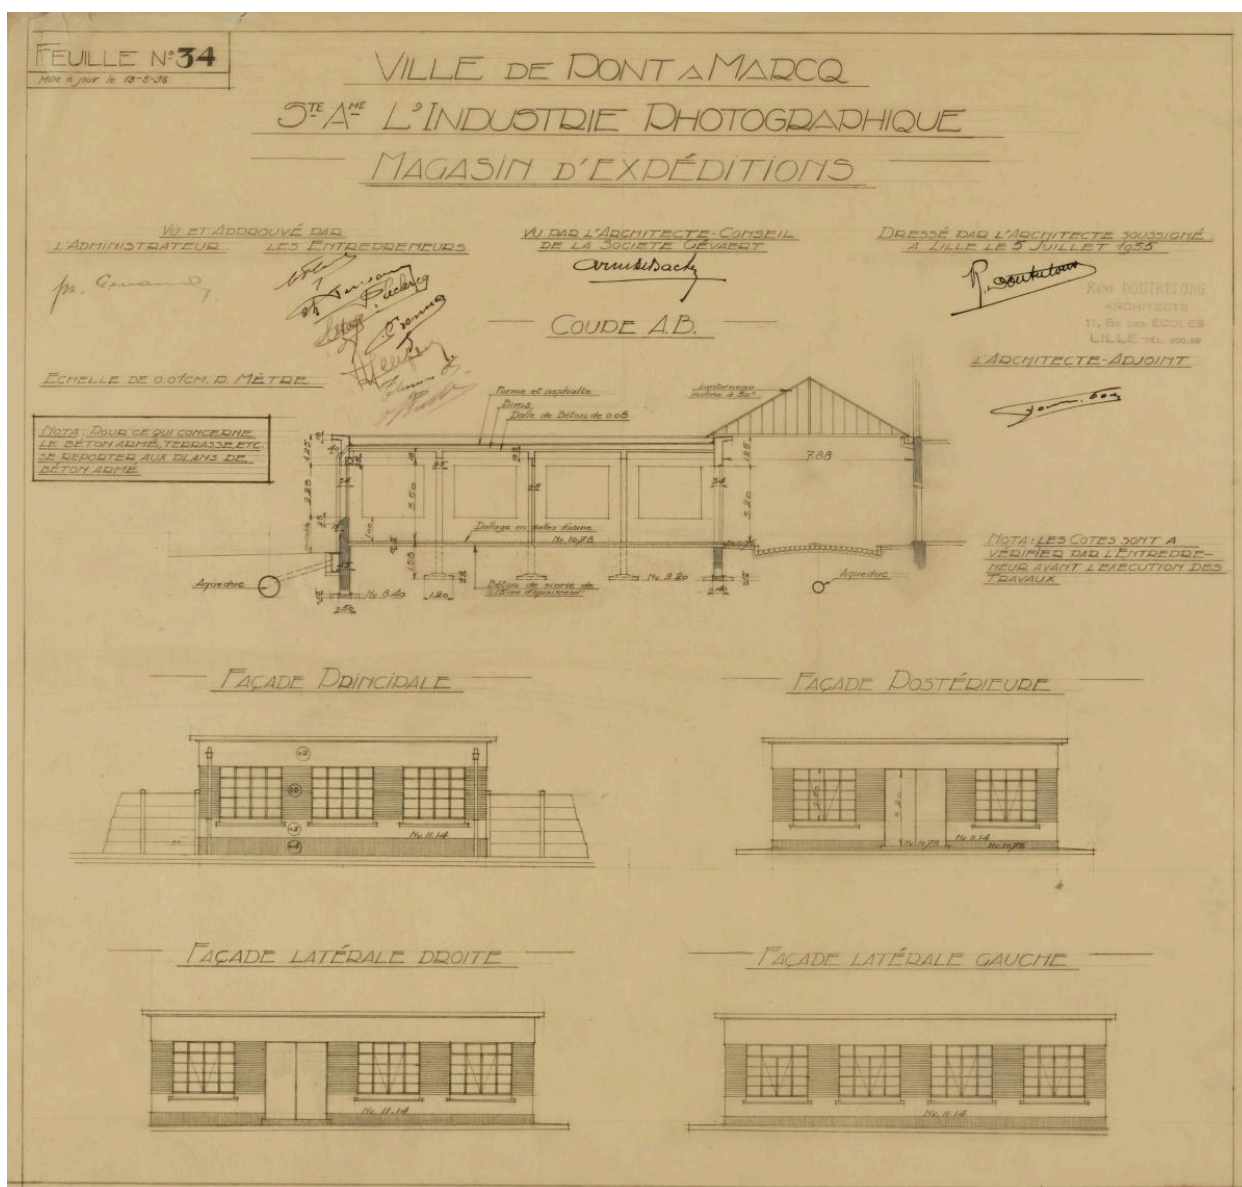 FEUILLE N° 34
Mise à jour le 18-5-56
VILLE DE PONT A MARCQ
STE AME L'INDUSTRIE PHOTOGRAPHIQUE
MAGASIN D'EXPÉDITIONS
VU ET APPROUVÉ PAR
L'ADMINISTRATEUR LES ENTREPRENEURS
VU PAR L'ARCHITECTE-CONSEIL
DE LA SOCIÉTÉ GÉVAERT
DRESSÉ PAR L'ARCHITECTE SOUSSIGNÉ
A LILLE LE 5 JUILLET 1955
RENÉ DOUTRELONG
ARCHITECTE
11, BD DES ÉCOLES
LILLE
L'ARCHITECTE-ADJOINT
COUPE A.B.
ECHELLE DE 0.01CM. P. MÈTRE
NOTA: POUR CE QUI CONCERNE
LE BÉTON ARMÉ, TERRASSE, ETC.
SE REPORTER AUX PLANS DE
BÉTON ARMÉ
Forme et asphalte
Dalle de Béton de 0.08
Lanterneau
incliné à 30°
7.88
1.25
1.25
2.25
3.50
3.20
1.00
Dallage en dalles d'usine
Nv. 10,78
Aqueduc
Nv. 8.40
1.20
Nv. 9.20
Aqueduc
NOTA: LES COTES SONT A
VÉRIFIER PAR L'ENTREPRE-
NEUR AVANT L'EXÉCUTION DES
TRAVAUX
FAÇADE PRINCIPALE
Nv. 11.14
FAÇADE POSTÉRIEURE
3.20
Nv. 11.14
Nv. 10,78
FAÇADE LATÉRALE DROITE
Nv. 11.14
FAÇADE LATÉRALE GAUCHE
Nv. 11.14